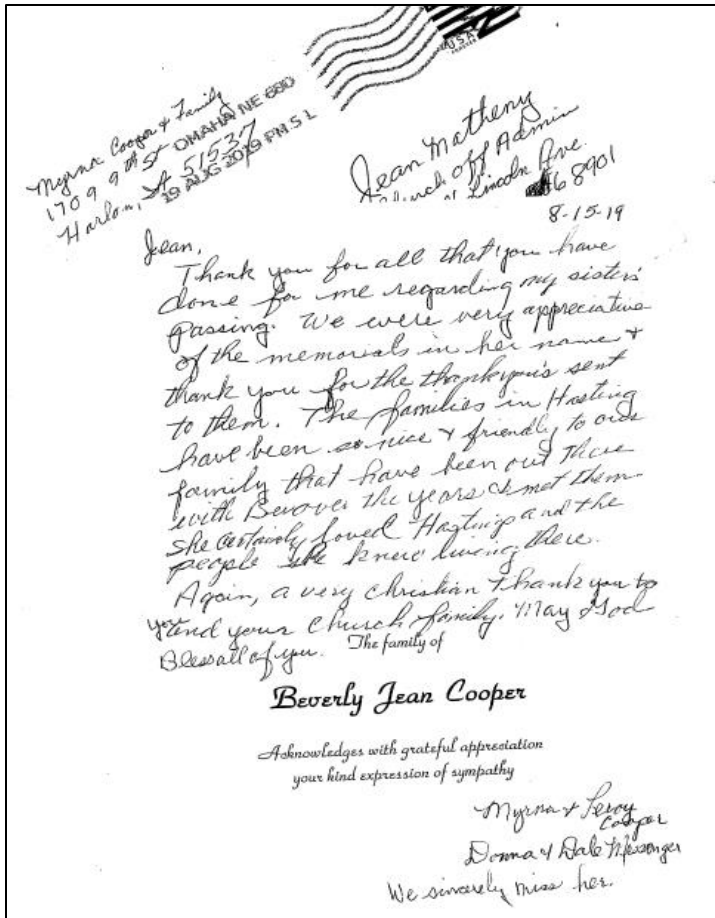 USA
FOREVER
Myrna Cooper & Family
1709 9th St
Harlan, IA 51537
OMAHA NE 680
19 AUG 2019 PM 5 L
Jean Matheny
Church off Admin
Lincoln Ave.
68901
8-15-19
Jean,
Thank you for all that you have
done for me regarding my sisters
passing. We were very appreciative
of the memorials in her name &
thank you for the thank you's sent
to them. The families in Hasting
have been so nice & friendly to our
family that have been out there
with Bev over the years & met them.
She certainly loved Hastings and the
people she knew living there.
Again, a very Christian thank you to
you and your church family. May God
Bless all of you.
The family of
Beverly Jean Cooper
Acknowledges with grateful appreciation
your kind expression of sympathy
Myrna & Leroy
Cooper
Donna & Dale Messenger
We sincerely miss her.